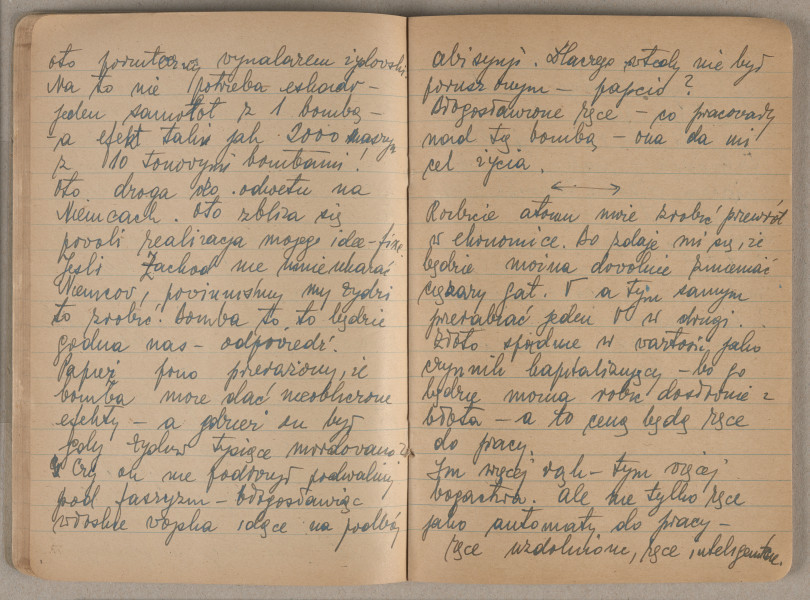 oto wynalazkiem żydowski.
Na to nie potrzeba eskadr –
jeden samolot z 1 bombą –
– a efekt taki jak 2000 maszyn
z 10 tonovymi bombami!
Oto droga do odwetu na
Niemcach. Oto zbliża się
povoli realizacja mojego idee-fixe.
Jeśli Zachod nie umie ukarać
Niemcov, povinniśmy my żydzi
to zrobić. Bomba to, to będzie
godna nas – odpoviedź.
Papież pono przerażony, że
bomba może dać nieobliczone
efekty – a gdzież on był
kiedy Żydów tysiące mordovano?
Czy on nie podłożył podwaliny
pod faszyzm – błogosławiąc
włoskie vojska idące na podbój
abisynji. Dlaczego wtedy nie był
poruszonym – papcio?
Błogosławione ręce – co pracovały
nad tą bombą – ona da mi
cel życia.
Rozbicie atomu może zrobić przewrót
w ekonomice. Bo zdaje mi się, że
będzie można dovolnie zmieniać
ciężary gat. V a tym samym
przerabiać jeden V w drugi.
Złoto spadnie w vartości, jako
czynnik kapitalizujący – bo go
będzie można robić dosłovnie z
błota – a to ceną będą ręce
do pracy.
Im więcej rąk – tym więcej
bogactwa. Ale nie tylko ręce
jako automaty do pracy –
ręce uzdolnione, ręce inteligentne.